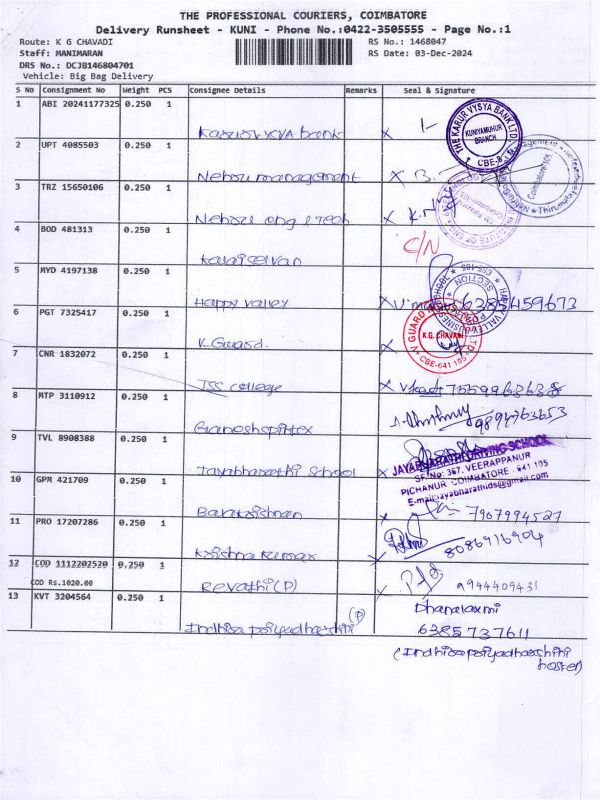 THE PROFESSIONAL COURIERS, COIMBATORE
Delivery Runsheet - KUNI - Phone No.:0422-3505555 - Page No.:1
Route: K G CHAVADI RS No.: 1468047
Staff: MANIMARAN RS Date: 03-Dec-2024
DRS No.: DCJB146804701
Vehicle: Big Bag Delivery
S No Consignment No Weight PCS Consignee Details Remarks Seal & Signature
1 ABI 20241177325 0.250 1
THE KARUR VYSYA BANK LTD
KUNIYAMUHUR
BRANCH
CBE-8
2 UPT 4085503 0.250 1
Nehru management
Coimbatore
Thirumalay
3 TRZ 15650106 0.250 1
Nehru
4 BOD 481313 0.250 1 C/N
Kalaiselvan
5 MYD 4197138 0.250 1
Happy valley 6385459673
6 PGT 7325417 0.250 1
V GUARD
K.G. CHAVADI
CBE-641 105
K Guard.
7 CNR 1832072 0.250 1
JSS college 7559963638
8 MTP 3110912 0.250 1
9894763653
9 TVL 8908388 0.250 1
Jayabharathi School
JAYABHARATHI DRIVING SCHOOL
SF.No: 367, VEERAPPANUR
PICHANUR COIMBATORE - 641 105
E-mail:jayabharathids@gmail.com
10 GPM 421709 0.250 1
7907994527
11 PRO 17207286 0.250 1
Krishna Kumar 8086916904
12 COD 1112202520 0.250 1
COD Rs.1020.00
Revathi (P) 9944409431
13 KVT 3204564 0.250 1
(P) Dhanalaxmi
6385737611
hostel)